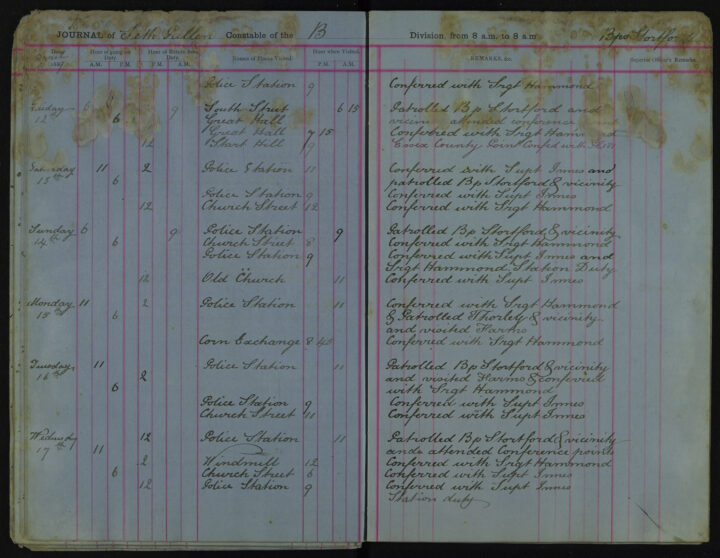 JOURNAL of Seth Constable of the B Division, from 8 a.m. to 8 a.m. Bps Stortford
Hour of going on Duty. Hour of Return from Duty. Names of Places Visited. Hour when Visited. REMARKS, &c. Superior Officer's Remarks.
A.M. P.M. A.M. P.M. P.M. A.M.
Police Station 9 Conferred with Srgt Hammond
Friday 6 9 South Street 6 15 Patrolled Bp Stortford and
12 6 Great Hall attended conference
Great Hall 7 15 Conferred with Srgt Hammond
12 Hill 9 Essex County
Saturday 11 2 Police Station 11 Conferred with Supt Innes and
13th 6 patrolled Bp Stortford & vicinity
Police Station 9 Conferred with Supt Innes
12 Church Street 12 Conferred with Srgt Hammond
Sunday 6 9 Police Station 9 Patrolled Bp Stortford & vicinity
14th 6 Church Street 8 Conferred with Srgt Hammond
Police Station 9 Conferred with Supt Innes and
Srgt Hammond Station Duty
12 Old Church 11 Conferred with Supt Innes
Monday 11 2 Police Station 11 Conferred with Srgt Hammond
15th 6 & Patrolled Thorley & vicinity
and visited Farms
Corn Exchange 8 45 Conferred with Srgt Hammond
Tuesday 11 Police Station 11 Patrolled Bp Stortford & vicinity
16th 2 and visited Farms & conferred
6 with Srgt Hammond
Police Station 9 Conferred with Supt Innes
Church Street 11 Conferred with Supt Innes
Wednesday 12 Police Station 11 Patrolled Bp Stortford & vicinity
17th 11 and attended Conference points
2 Windmill 12 Conferred with Srgt Hammond
6 Church Street 6 Conferred with Supt Innes
12 Police Station 9 Conferred with Supt Innes
Station duty